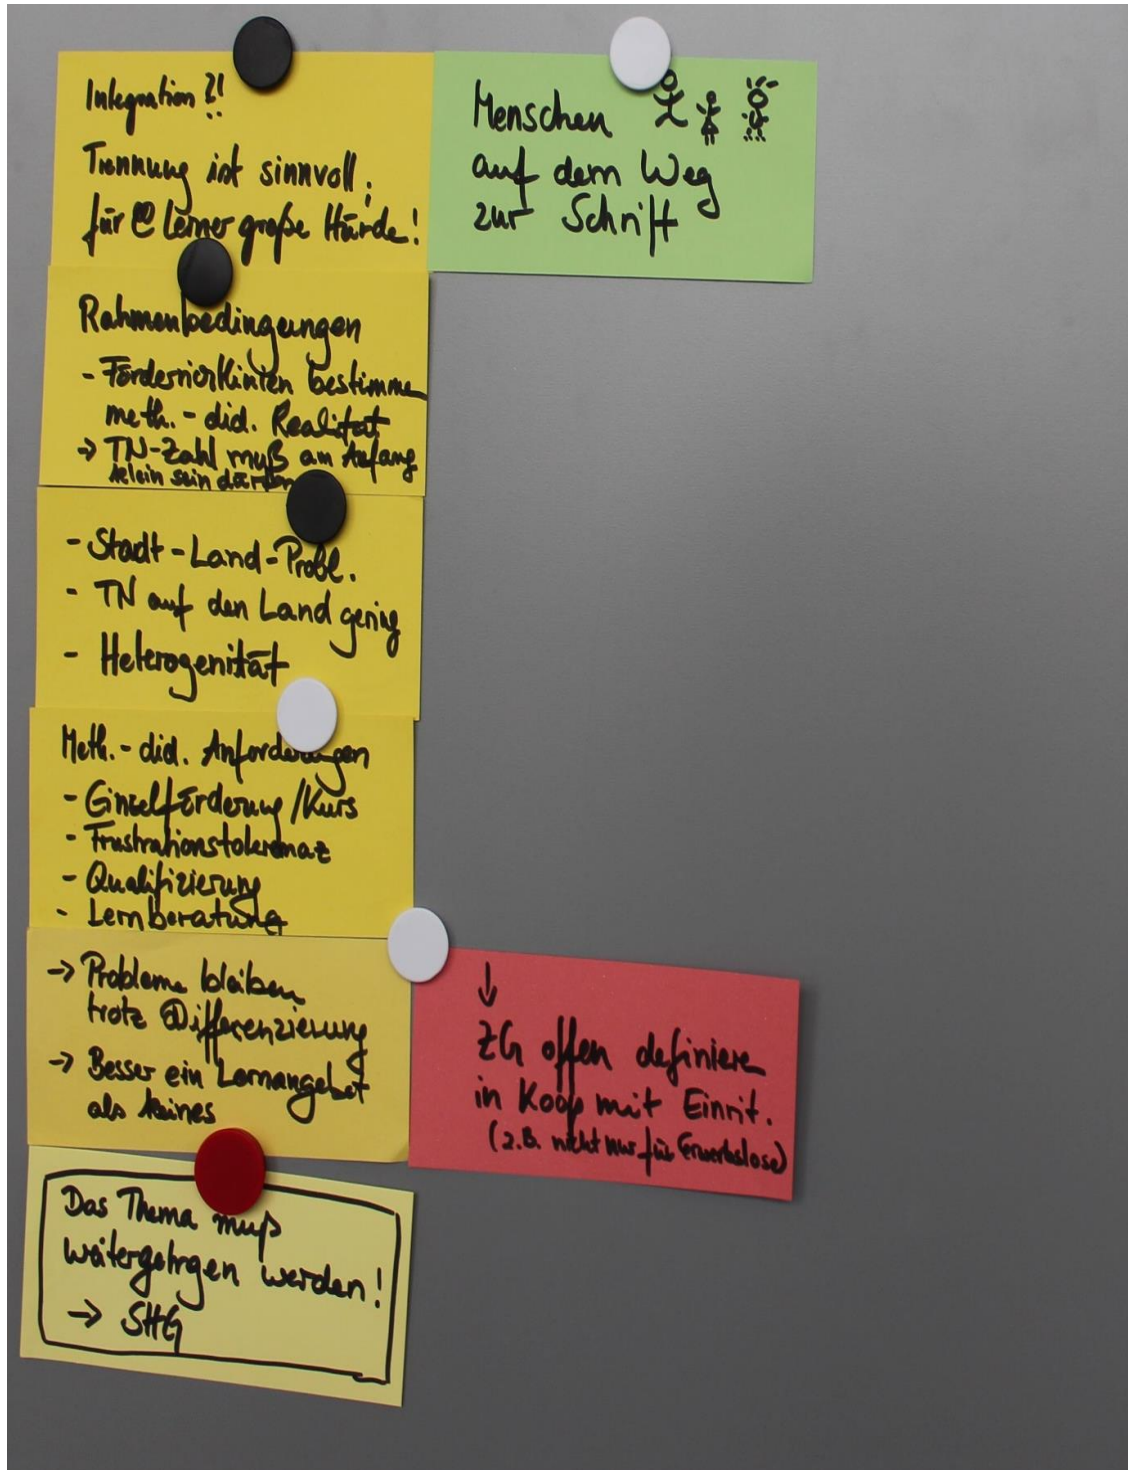 Integration ?!
Trennung ist sinnvoll,
für @ Lerner große Hürde!
Menschen
auf dem Weg
zur Schrift
Rahmenbedingungen
- Förderrichtlinien bestimmen
meth.-did. Realität
→ TN-Zahl muß am Anfang
klein sein dürfen
- Stadt-Land-Probl.
- TN auf den Land gering
- Heterogenität
Meth.-did. Anforderungen
- Einzelförderung/Kurs
- Frustrationstoleranz
- Qualifizierung
- Lernberatung
→ Probleme bleiben
trotz Differenzierung
→ Besser ein Lernangebot
als keines
↓
ZG offen definieren
in Koop mit Einrit.
(z.B. nicht nur für Erwerbslose)
Das Thema muß
weitergetrgen werden!
→ SHG